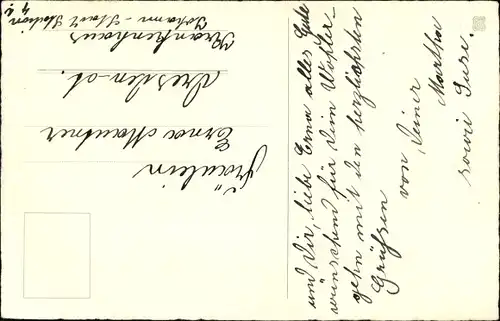 und Dir, liebe Erna alles Gute
wünschend für Dein Wohler-
gehn mit den herzlichsten
Grüßen
von Deiner
Martha
sowie Susi.
Fräulein
Erna Meutner
Dresden-A.
Krankenhaus
Johann-Stadt Station